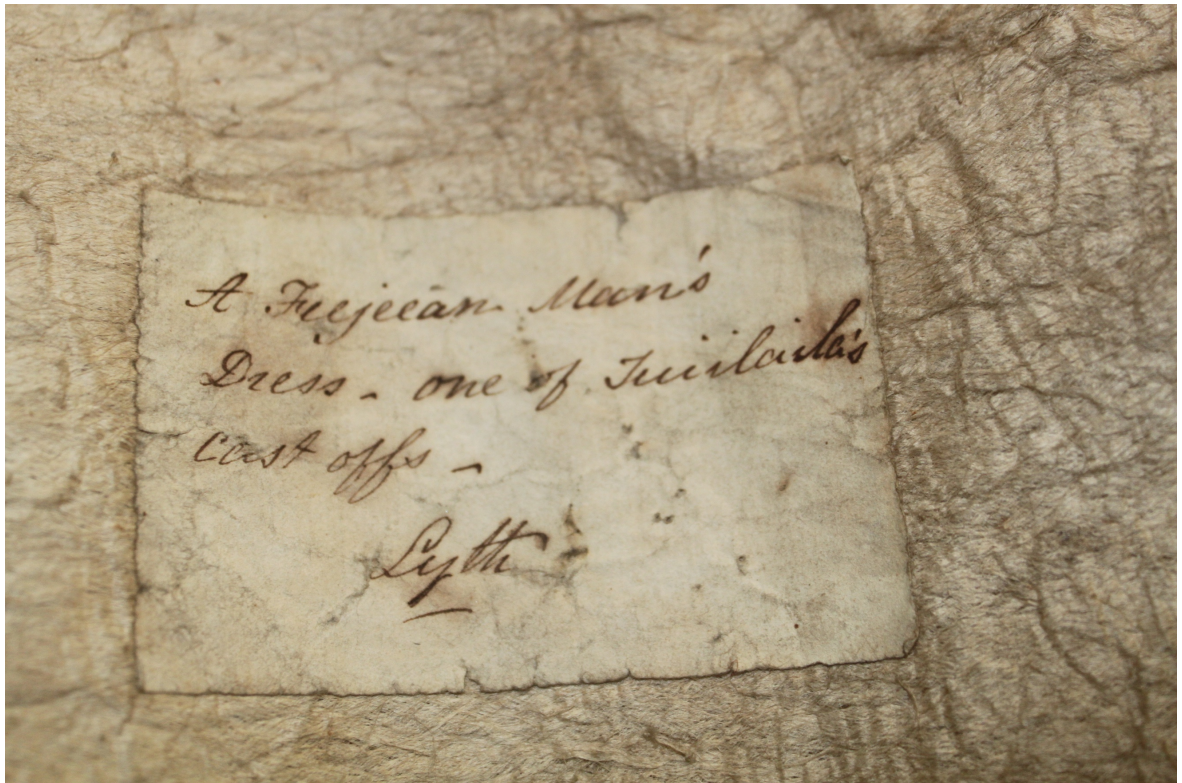 A Feejeean Man's
Dress - one of Tuiilaila's
cast offs -
Lyth